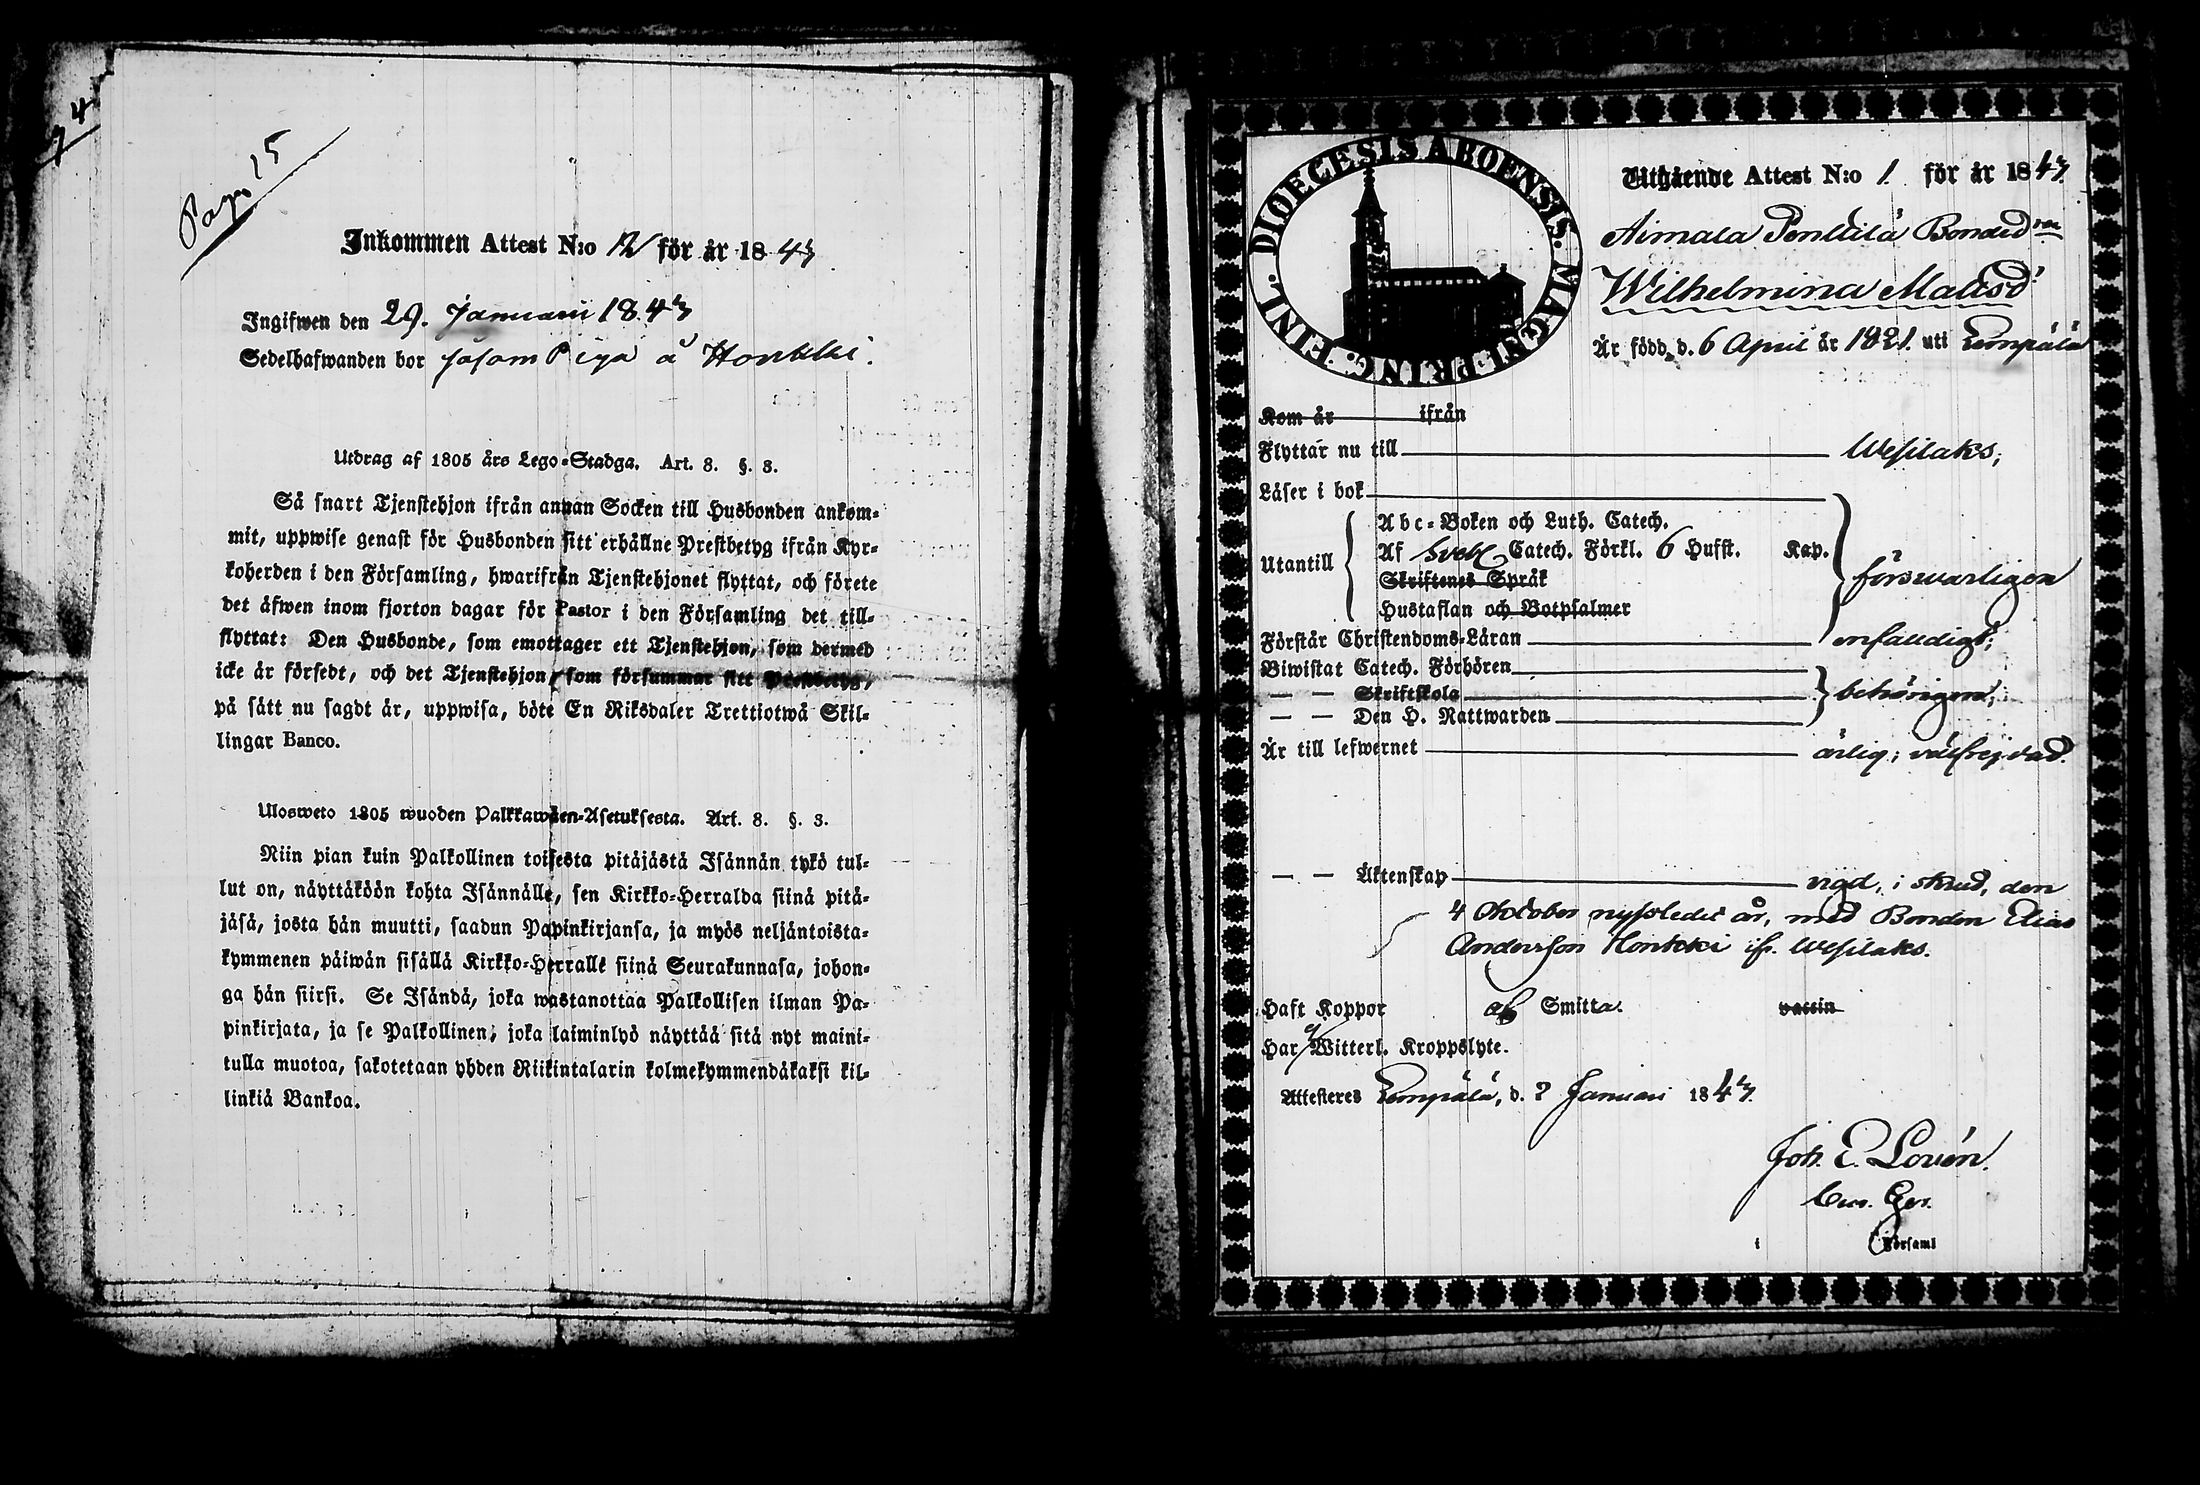 74
Pag. 15
Inkommen Attest N:o 12 för år 1843
Ingifwen den 29. Januari 1843
Sedelhafwanden bor såsom Piga å Honkki.
Utdrag af 1805 års Lego-Stadga. Art. 8. §. 3.
Så snart Tjenstehjon ifrån annan Socken till Husbonden ankom-
mit, uppwise genast för Husbonden sitt erhållne Prestbetyg ifrån Kyr-
koherden i den Församling, hwarifrån Tjenstehjonet flyttat, och förete
det äfwen inom fjorton dagar för Pastor i den Församling det till-
flyttat: Den Husbonde, som emottager ett Tjenstehjon, som dermed
icke är försedt, och det Tjenstehjon, som försummar sitt Prestbetyg,
på sätt nu sagdt är, uppwisa, böte En Riksdaler Trettiotwå Skil-
lingar Banco.
Ulosweto 1805 wuoden Palkkawäen-Asetuksesta. Art. 8. §. 3.
Niin pian kuin Palkollinen toisesta pitäjästä Isännän tykö tul-
lut on, näyttäköön kohta Isännälle, sen Kirkko-Herralda siinä pitä-
jäsä, josta hän muutti, saadun Papinkirjansa, ja myös neljäntoista-
kymmenen päiwän sisällä Kirkko-Herralle siinä Seurakunnasa, johon-
ga hän siirsi. Se Isändä, joka wastanottaa Palkollisen ilman Pa-
pinkirjata, ja se Palkollinen, joka laiminlyö näyttää sitä nyt maini-
tulla muotoa, sakotetaan yhden Riikintalarin kolmekymmendäkaksi kil-
linkiä Bankoa.
DIOECESIS ABOENSIS. MAGNI PRINC. FINL.
Utgående Attest N:o 1. för år 1843.
Aimala Penttilä Bonded:ren
Wilhelmina Matsd:r
Är född d. 6 April år 1821. uti Lempälä
Kom år ifrån
Flyttar nu till Wesilaks;
Läser i bok
Abc-Boken och Luth. Catech.
Utantill Af Sveb. Catech. Förkl. 6 Hufst. Kap. försvarligen
Skriftenes Språk
Hustaflan och Botpsalmer
Förstår Christendoms-Läran enfaldigt;
Biwistat Catech. Förhören
— — Skriftskola behörigen;
— — Den H. Nattwarden
Är till lefwernet ärlig; välfrejdad.
— — Äktenskap vigd, i skrud, den
4 Oktober nyssledet år, med Bonden Elias
Andersson Honkki ifr. Wesilaks.
Haft Koppor af Smitta. vaccin
Har ej Witterl. Kroppslyte.
Attesteres Lempälä, d. 2 Januari 1843.
Joh. E. Lovén.
i Församl